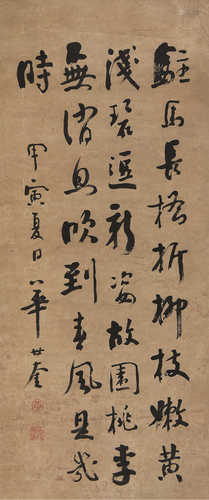 駐馬長橋折柳枝嫩黃
淺碧逞新姿故園桃李
無消息吹到春風是幾
時
甲寅夏日 華世奎